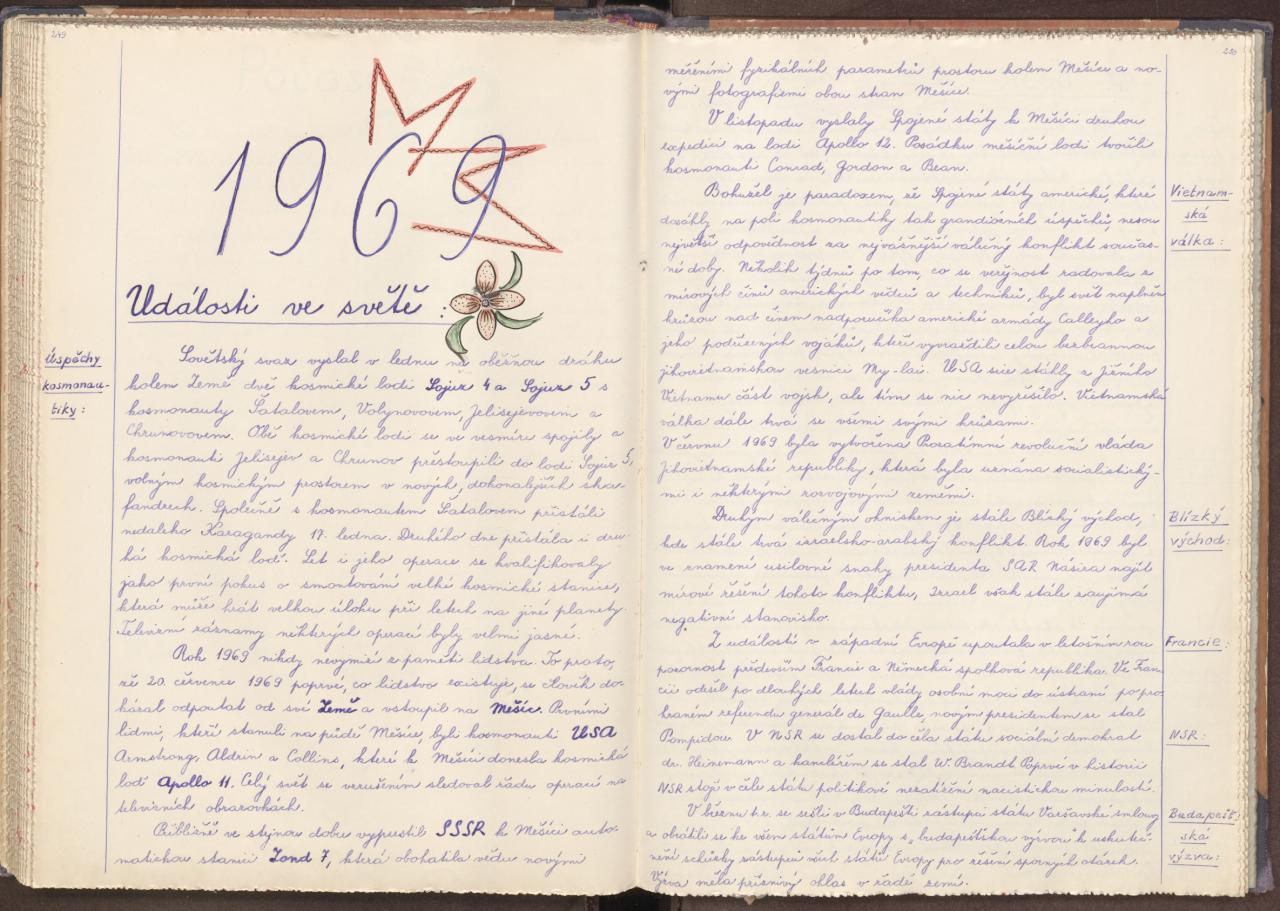 249
1969
Události ve světě :
Úspěchy
kosmonau-
tiky :
Sovětský svaz vyslal v lednu na oběžnou dráhu
kolem Země dvě kosmické lodi Sojuz 4 a Sojuz 5 s
kosmonauty Šatalovem, Volynovovem, Jelisejevovem a
Chrunovovem. Obě kosmické lodi se ve vesmíru spojily a
kosmonauti Jelisejev a Chrunov přestoupili do lodi Sojuz 5,
volným kosmickým prostorem v nových, dokonalejších ska-
fandrech. Společně s kosmonautem Šatalovem přistáli
nedaleko Karagandy 17. ledna. Druhého dne přistála i dru-
há kosmická loď. Let i jeho operace se kvalifikovaly
jako první pokus o smontování velké kosmické stanice,
která může hrát velkou úlohu při letech na jiné planety.
Televizní záznamy některých operací byly velmi jasné.
Rok 1969 nikdy nevymizí z paměti lidstva. To proto,
že 20. července 1969 poprvé, co lidstvo existuje, se člověk do-
kázal odpoutat od své Země a vstoupil na Měsíc. Prvními
lidmi, kteří stanuli na půdě Měsíce, byli kosmonauti USA
Armstrong, Aldrin a Collins, které k Měsíci donesla kosmická
loď Apollo 11. Celý svět se vzrušením sledoval řadu operací na
televizních obrazovkách.
Přibližně ve stejnou dobu vypustil SSSR k Měsíci auto-
matickou stanici Zond 7, která obohatila vědu novými
250
měřeními fyzikálních parametrů prostoru kolem Měsíce a no-
vými fotografiemi obou stran Měsíce.
V listopadu vyslaly Spojené státy k Měsíci druhou
expedici na lodi Apollo 12. Posádku měsíční lodi tvořili
kosmonauti Conrad, Gordon a Bean.
Vietnam-
ská
válka :
Bohužel je paradoxem, že Spojené státy americké, které
dosáhly na poli kosmonautiky tak grandiózních úspěchů, nesou
největší odpovědnost za nejvážnější válečný konflikt součas-
né doby. Několik týdnů po tom, co se veřejnost radovala z
mírových činů amerických vědců a techniků, byl svět naplněn
hrůzou nad činem nadporučíka americké armády Calleyho a
jeho podřízených vojáků, kteří vyvraždili celou bezbrannou
jihovietnamskou vesnici My-lai. USA sice stáhly z Jižního
Vietnamu část vojsk, ale tím se nic nevyřešilo. Vietnamská
válka dále trvá se všemi svými hrůzami.
V červnu 1969 byla vytvořena Prozatímní revoluční vláda
Jihovietnamské republiky, která byla uznána socialistický-
mi i některými rozvojovými zeměmi.
Blízký
východ :
Druhým válečným ohniskem je stále Blízký východ,
kde stále trvá izraelsko-arabský konflikt. Rok 1969 byl
ve znamení usilovné snahy presidenta SAR Násira najít
mírové řešení tohoto konfliktu, Izrael však stále zaujímá
negativní stanovisko.
Francie :
Z událostí v západní Evropě upoutala v letošním rou
pozornost především Francie a Německá spolková republika. Ve Fran-
cii odešel po dlouhých letech vlády osobní moci do ústraní po pro-
hraném referendu generál de Gaulle, novým presidentem se stal
NSR :
Pompidou. V NSR se dostal do čela státu sociální demokrat
dr. Heinemann a kancléřem se stal W. Brandt. Poprvé v historii
NSR stojí v čele státu politikové nezatížení nacistickou minulostí.
Budapešť-
ská
výzva :
V březnu t.r. se sešli v Budapešti zástupci států Varšavské smlouvy
a obrátili se ke všem státům Evropy s „budapešťskou výzvou k uskuteč-
nění schůzky zástupců všech států Evropy pro řešení sporných otázek.
Výzva měla příznivý ohlas v řadě zemí.